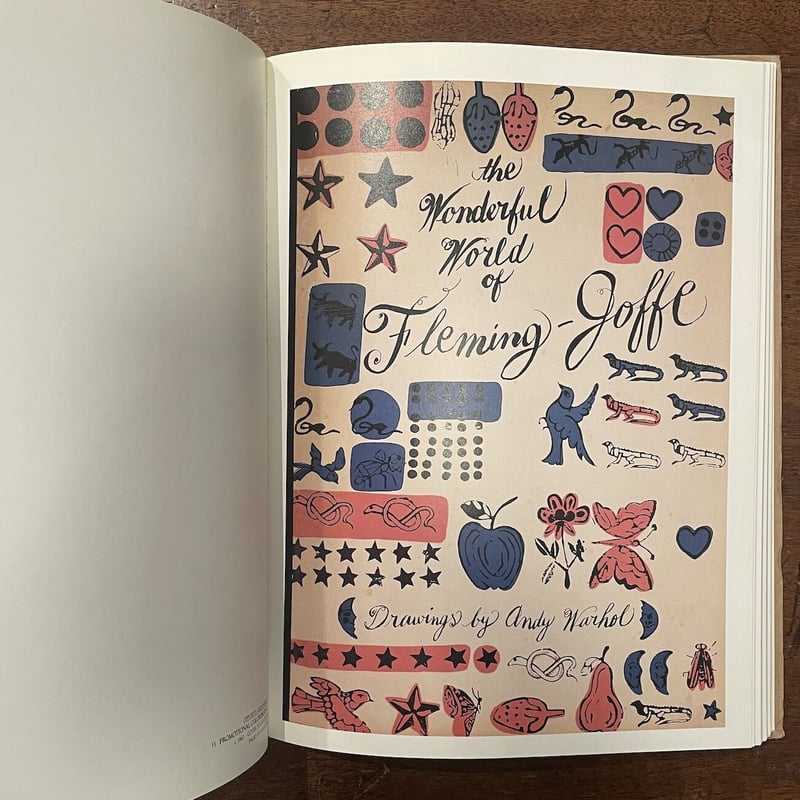 the
Wonderful
World
of
Fleming-Joffe
Drawings by Andy Warhol
13 PROMOTIONAL